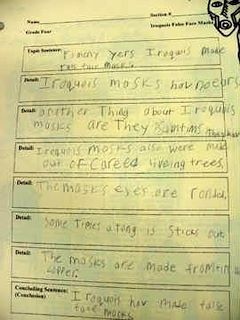 Name
Section #
Grade Four
Iroquois False Face Masks
Topic Sentence: For many yers Iroquis made
fals face Masks.
Detail: Iroquois masks hav no ears
Detail: another Thing about Iroquois
masks are They
Detail: Iroquois masks also were made
out of careed liveing trees.
Detail: The masks eyes are ronded.
Detail: Some Times a tong is sticks out
Detail: The masks are made from tin or
copper.
Concluding Sentence: Iroquois hav made false
(Conclusion) face masks